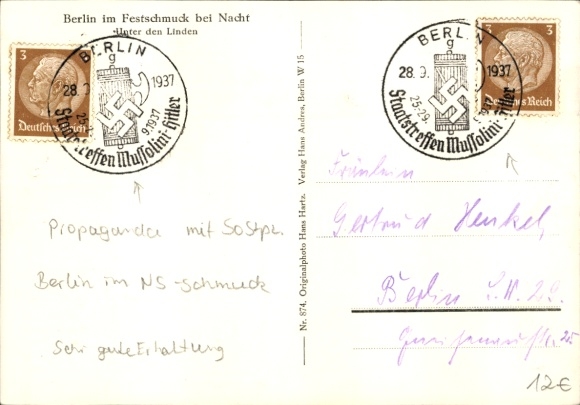 Berlin im Festschmuck bei Nacht
Unter den Linden
3
Deutsches Reich
BERLIN
g
28. 9. 1937
25.-29. 9.1937
Staatstreffen Mussolini-Hitler
BERLIN
g
28. 9. 1937
25.-29.
Staatstreffen Mussolini-Hitler
3
Deutsches Reich
Propaganda mit SoStpl.
Berlin im NS-schmuck
Sehr gute Erhaltung
Nr. 874. Originalphoto Hans Hartz. Verlag Hans Andres, Berlin W 15
Fräulein
Gertrud Henkel,
Berlin S.W. 29.
Gneisenaustr. 25.
12€